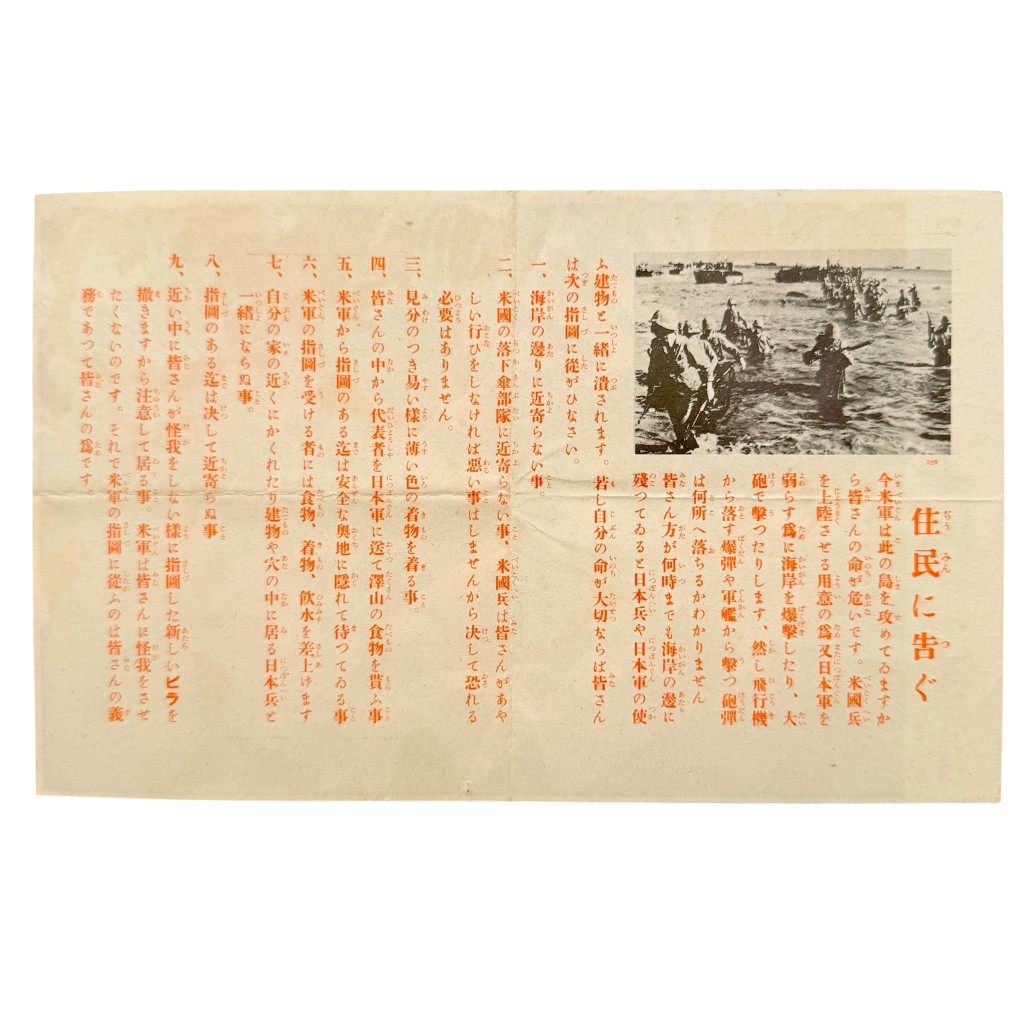 住民に告ぐ
今米軍は此の島を攻めてゐますか
ら皆さんの命が危いです。米國兵
を上陸させる用意の爲又日本軍を
弱らす爲に海岸を爆擊したり、大
砲で擊つたりします、然し飛行機
から落す爆彈や軍艦から擊つ砲彈
は何所へ落ちるかわかりません
皆さん方が何時までも海岸の邊に
殘つてゐると日本兵や日本軍の使
ふ建物と一緒に潰されます。若し自分の命が大切ならば皆さん
は次の指圖に從ひなさい。
一、海岸の邊りに近寄らない事。
二、米國の落下傘部隊に近寄らない事、米國兵は皆さんがあや
しい行ひをしなければ惡い事はしませんから決して恐れる
必要はありません。
三、見分のつき易い樣に薄い色の着物を着る事。
四、皆さんの中から代表者を日本軍に送て澤山の食物を貰ふ事
五、米軍から指圖のある迄は安全な奧地に隱れて待つてゐる事
六、米軍の指圖を受ける者には食物、着物、飮水を差上げます
七、自分の家の近くにかくれたり建物や穴の中に居る日本兵と
一緒にならぬ事。
八、指圖のある迄は決して近寄らぬ事
九、近い中に皆さんが怪我をしない樣に指圖した新しいビラを
撒きますから注意して居る事。米軍は皆さんに怪我をさせ
たくないのです。それで米軍の指圖に從ふのは皆さんの義
務であつて皆さんの爲です。